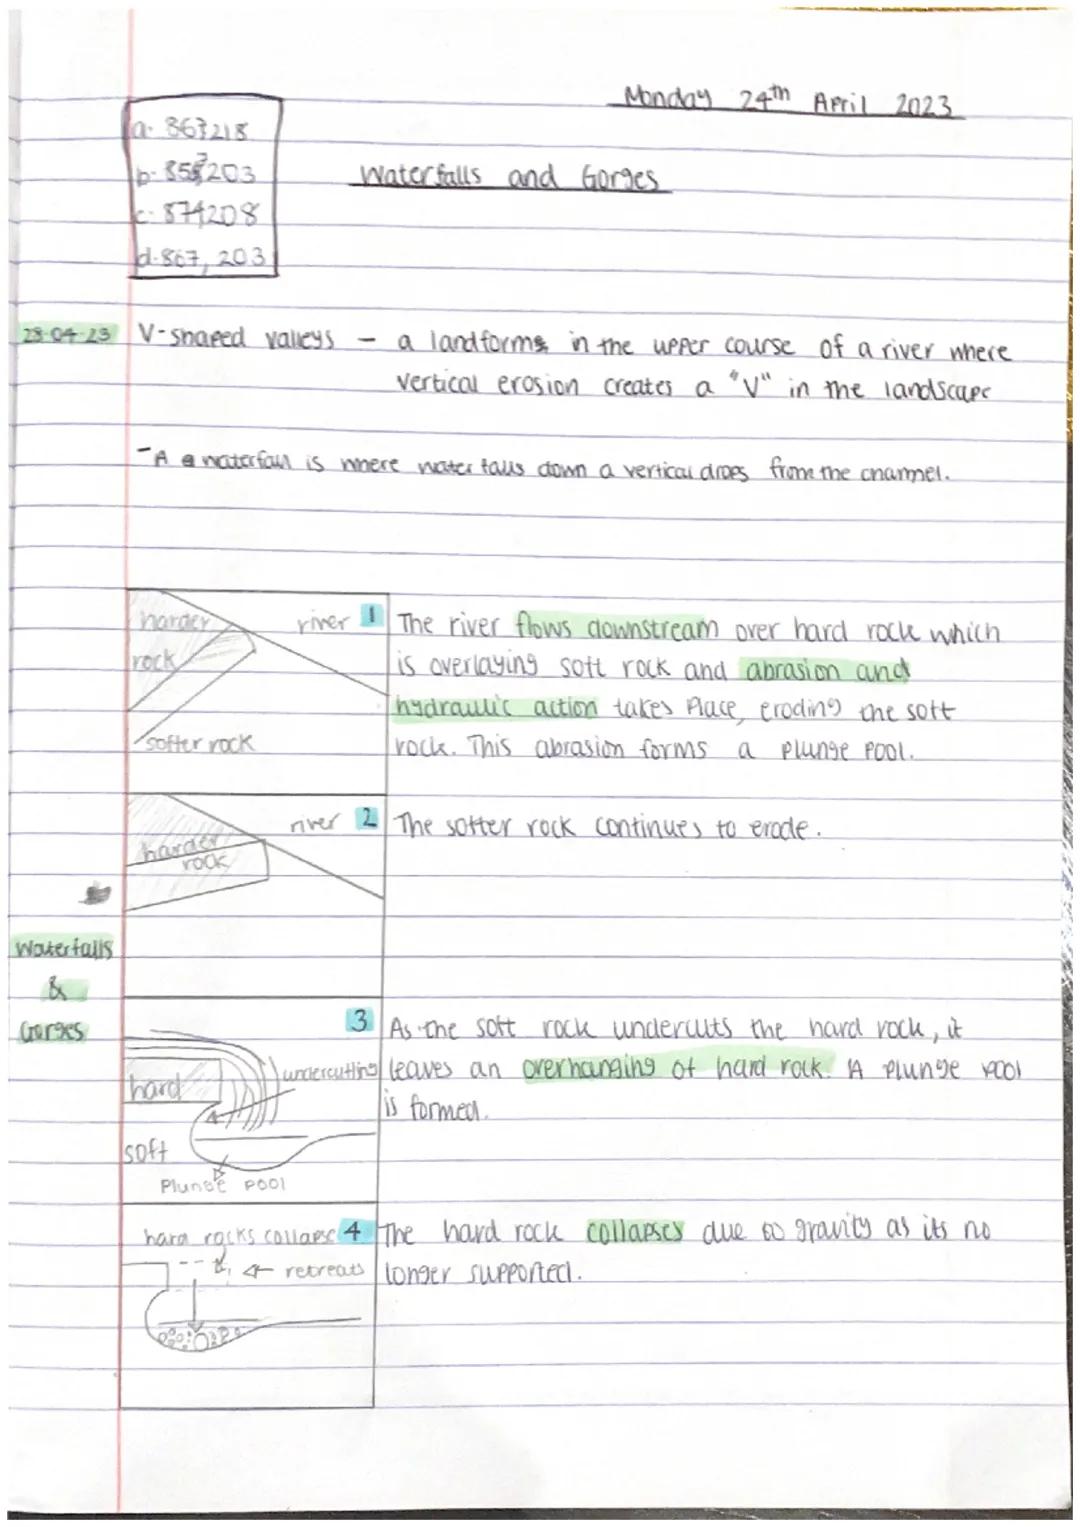 Monday 24th April 2023
a. 867218
b. 857203
c. 874208
d. 867, 203
Waterfalls and Gorges
28.04.23
V-shaped valleys - a landforms in the upper course of a river where
vertical erosion creates a "V" in the landscape
-A waterfall is where water falls down a vertical drops from the channel.
harder
rock
softer rock
river 1
The river flows downstream over hard rock which
is overlaying soft rock and abrasion and
hydraulic action takes place, eroding the soft
rock. This abrasion forms a plunge pool.
river 2
harder
rock
The softer rock continues to erode.
Waterfalls
&
Gorges
3
undercutting
hard
soft
Plunge pool
As the soft rock undercuts the hard rock, it
leaves an overhanging of hard rock. A plunge pool
is formed.
hard rocks collapse 4
retreats
The hard rock collapses due to gravity as its no
longer supported.